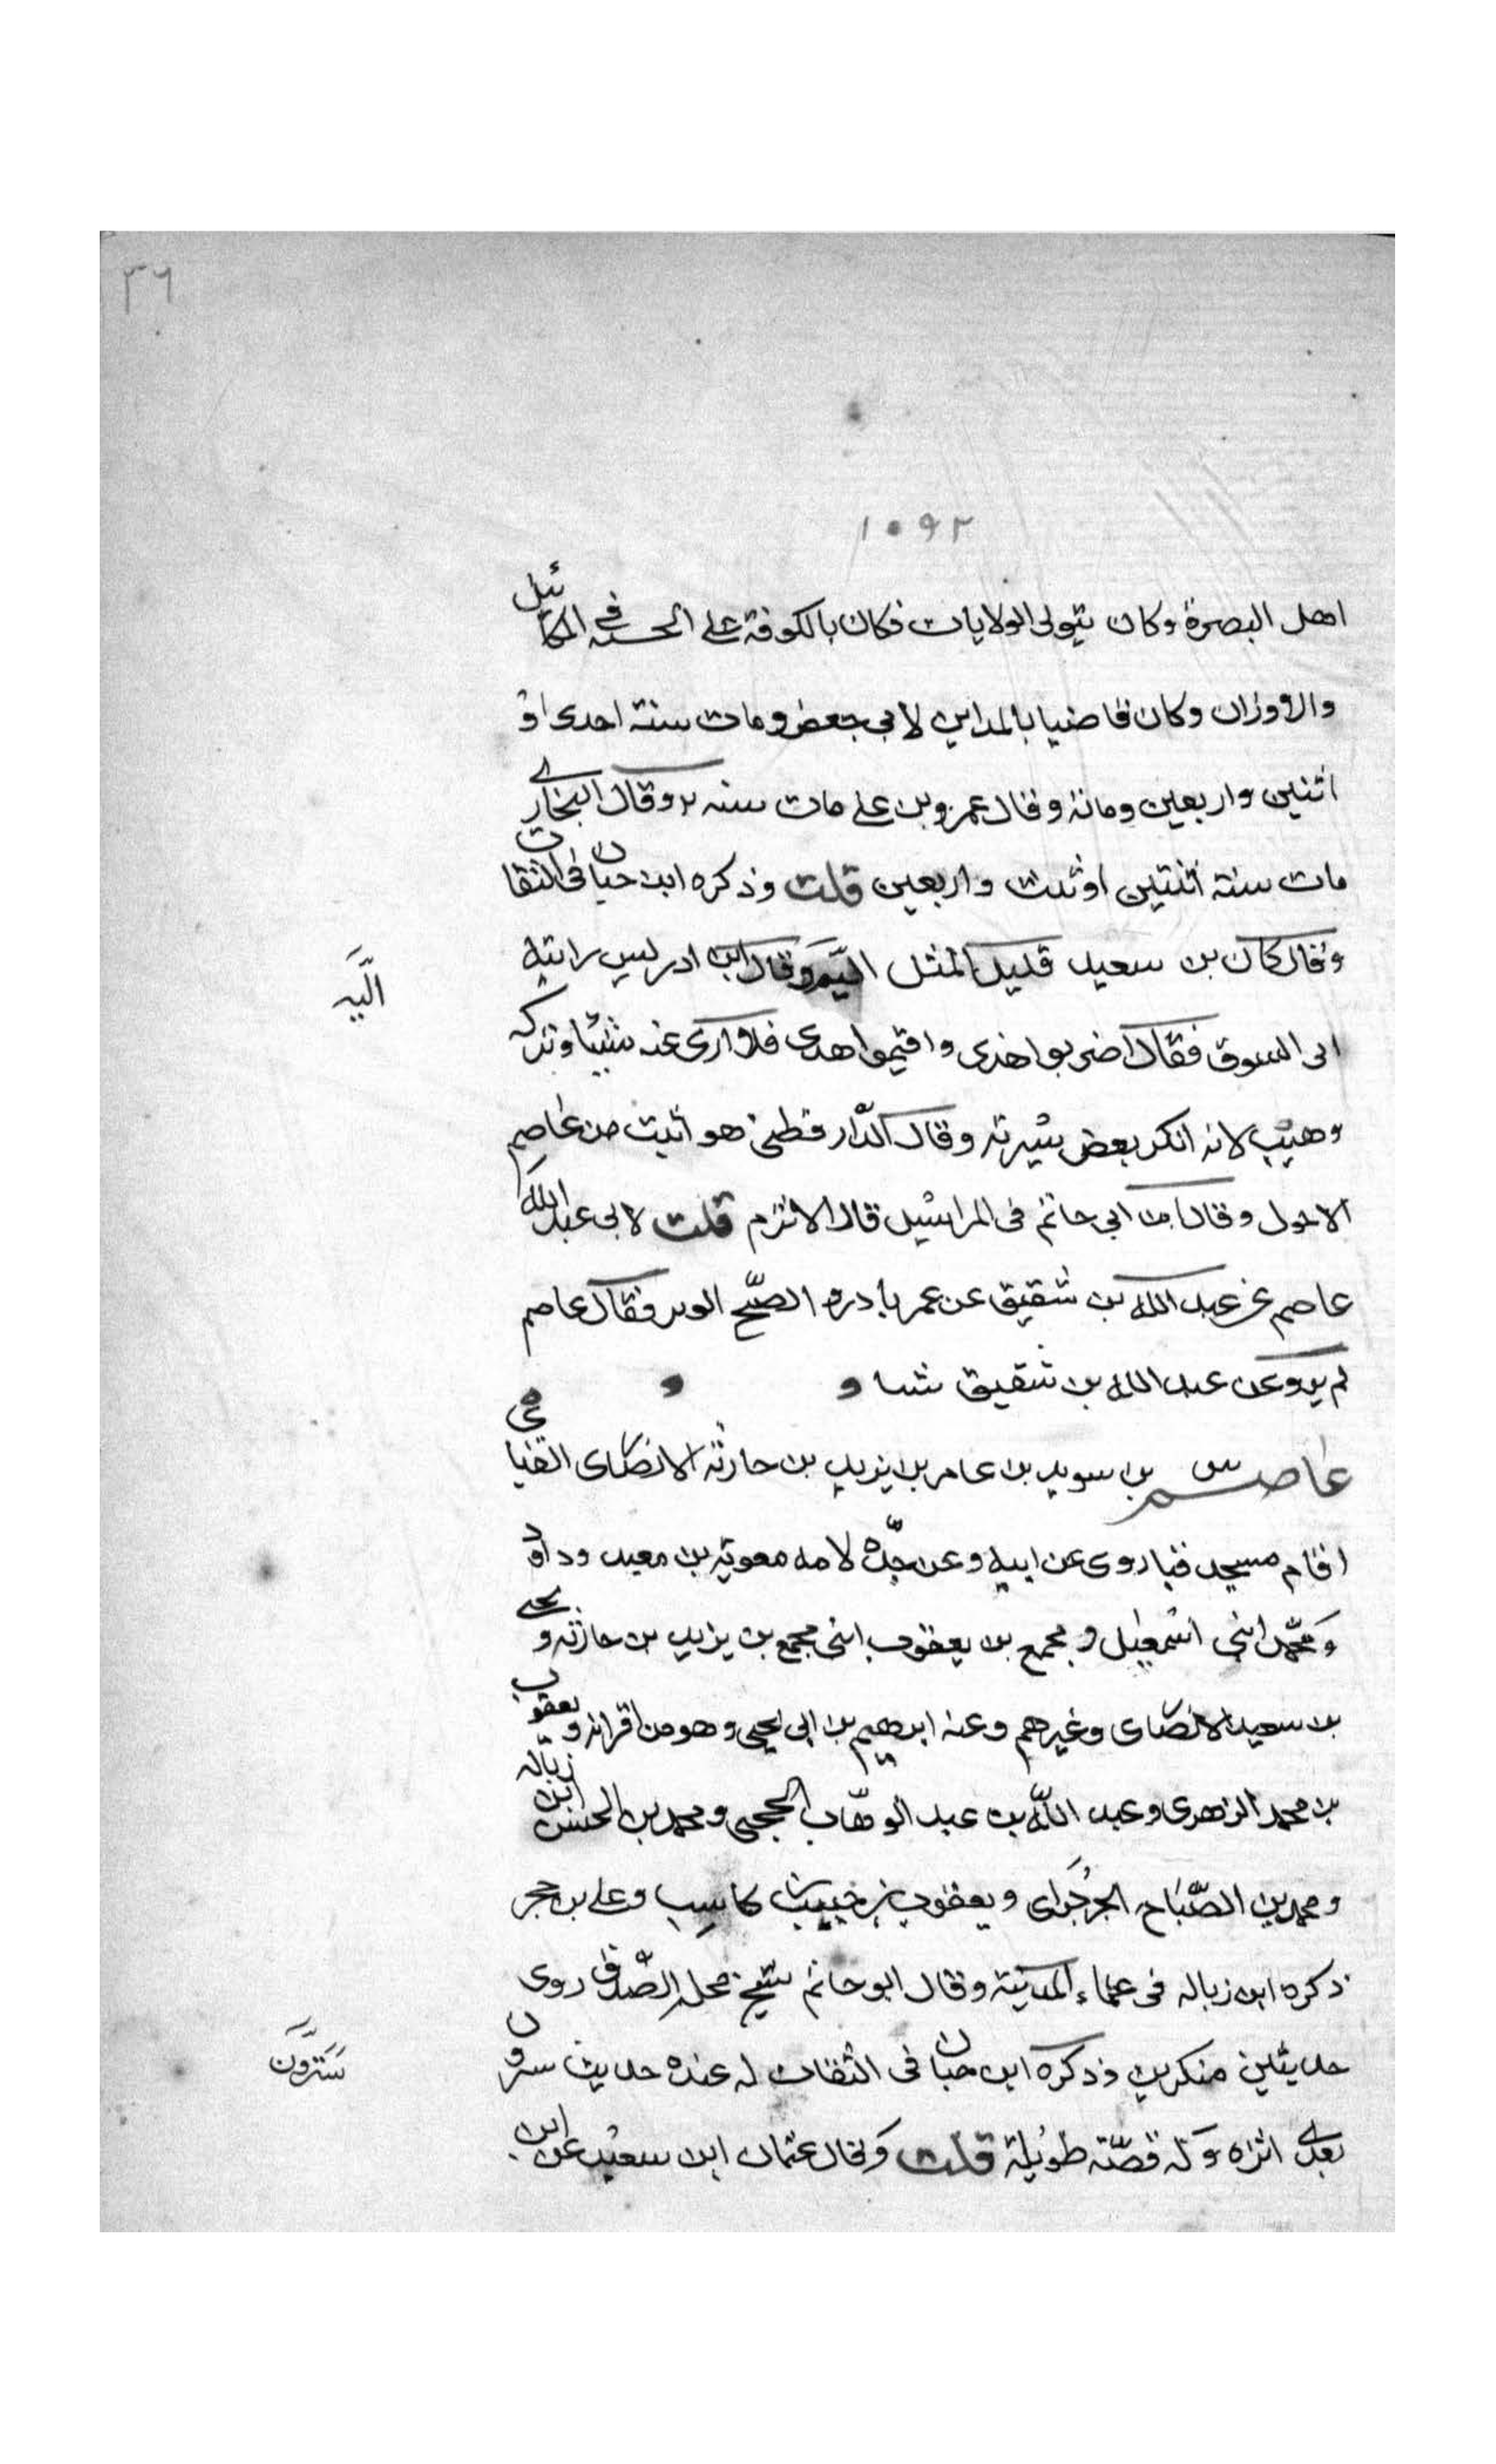 ٣٦
١٠٩٢
اهل البصرة وكان يتولى الولايات فكان بالكوفة على الحسبه فى المكائيل
والاوزان وكان قاضيا بالمداين لابى جعفر ومات سنة احدى او
اثنين واربعين ومائة وقال عمرو بن على مات سنه ٢ وقال البخارى
مات سنة اثنتين اوثلث واربعين قلت وذكره ابن حبان فى الثقات
وقال كان بن سعيد قليل المثل اليه وقال ابن ادريس رايته
الَّيه
اتى السوق فقال اضربوا هذى واقيموا هذى فلا اروى عنه شيئا وتركه
وهيب لانه انكر بعض سيرته وقال الدّارقطنى هو اثبت من عاصم
الاحول وقال ابن ابى حاتم فى المراسيل قال الاثرم قلت لابى عبد الله
عاصم عن عبد الله بن شقيق عن عمر بادروا الصّبح الوتر فقال عاصم
لم يروعن عبد الله بن شقيق شيا و
عاصم بن سويد بن عامر بن يزيد بن حارثه الانصارى القبائى
اقام مسجد قبا روى عن ابيه وعن جدّه لامه معوية بن معبد وداود
ومحمّد ابنى اسمعيل ومجمع بن يعقوب ابنى مجمع بن يزيد بن حارثه ويحيى
بن سعيد الانصارى وغيرهم وعنه ابرهيم بن ابى يحيى وهو من اقرانه ويعقوب
بن محمد الزهرى وعبد اللّه بن عبد الوهّاب الحجبى ومحمد بن الحسن ابن زباله
ومحمد بن الصّباح الجرجراى ويعقوب بن كاسب وعلى بن حجر
ذكره ابن زباله فى علماء المدينة وقال ابو حاتم شيخ محله الصّدق روى
حديثين منكرين وذكره ابن حبان فى الثقات له عنده حديث سترون
سَتَرَوْنَ
بعدى اثره وله قصّة طويلة قلت وقال عثمان ابن سعيد عن ابن